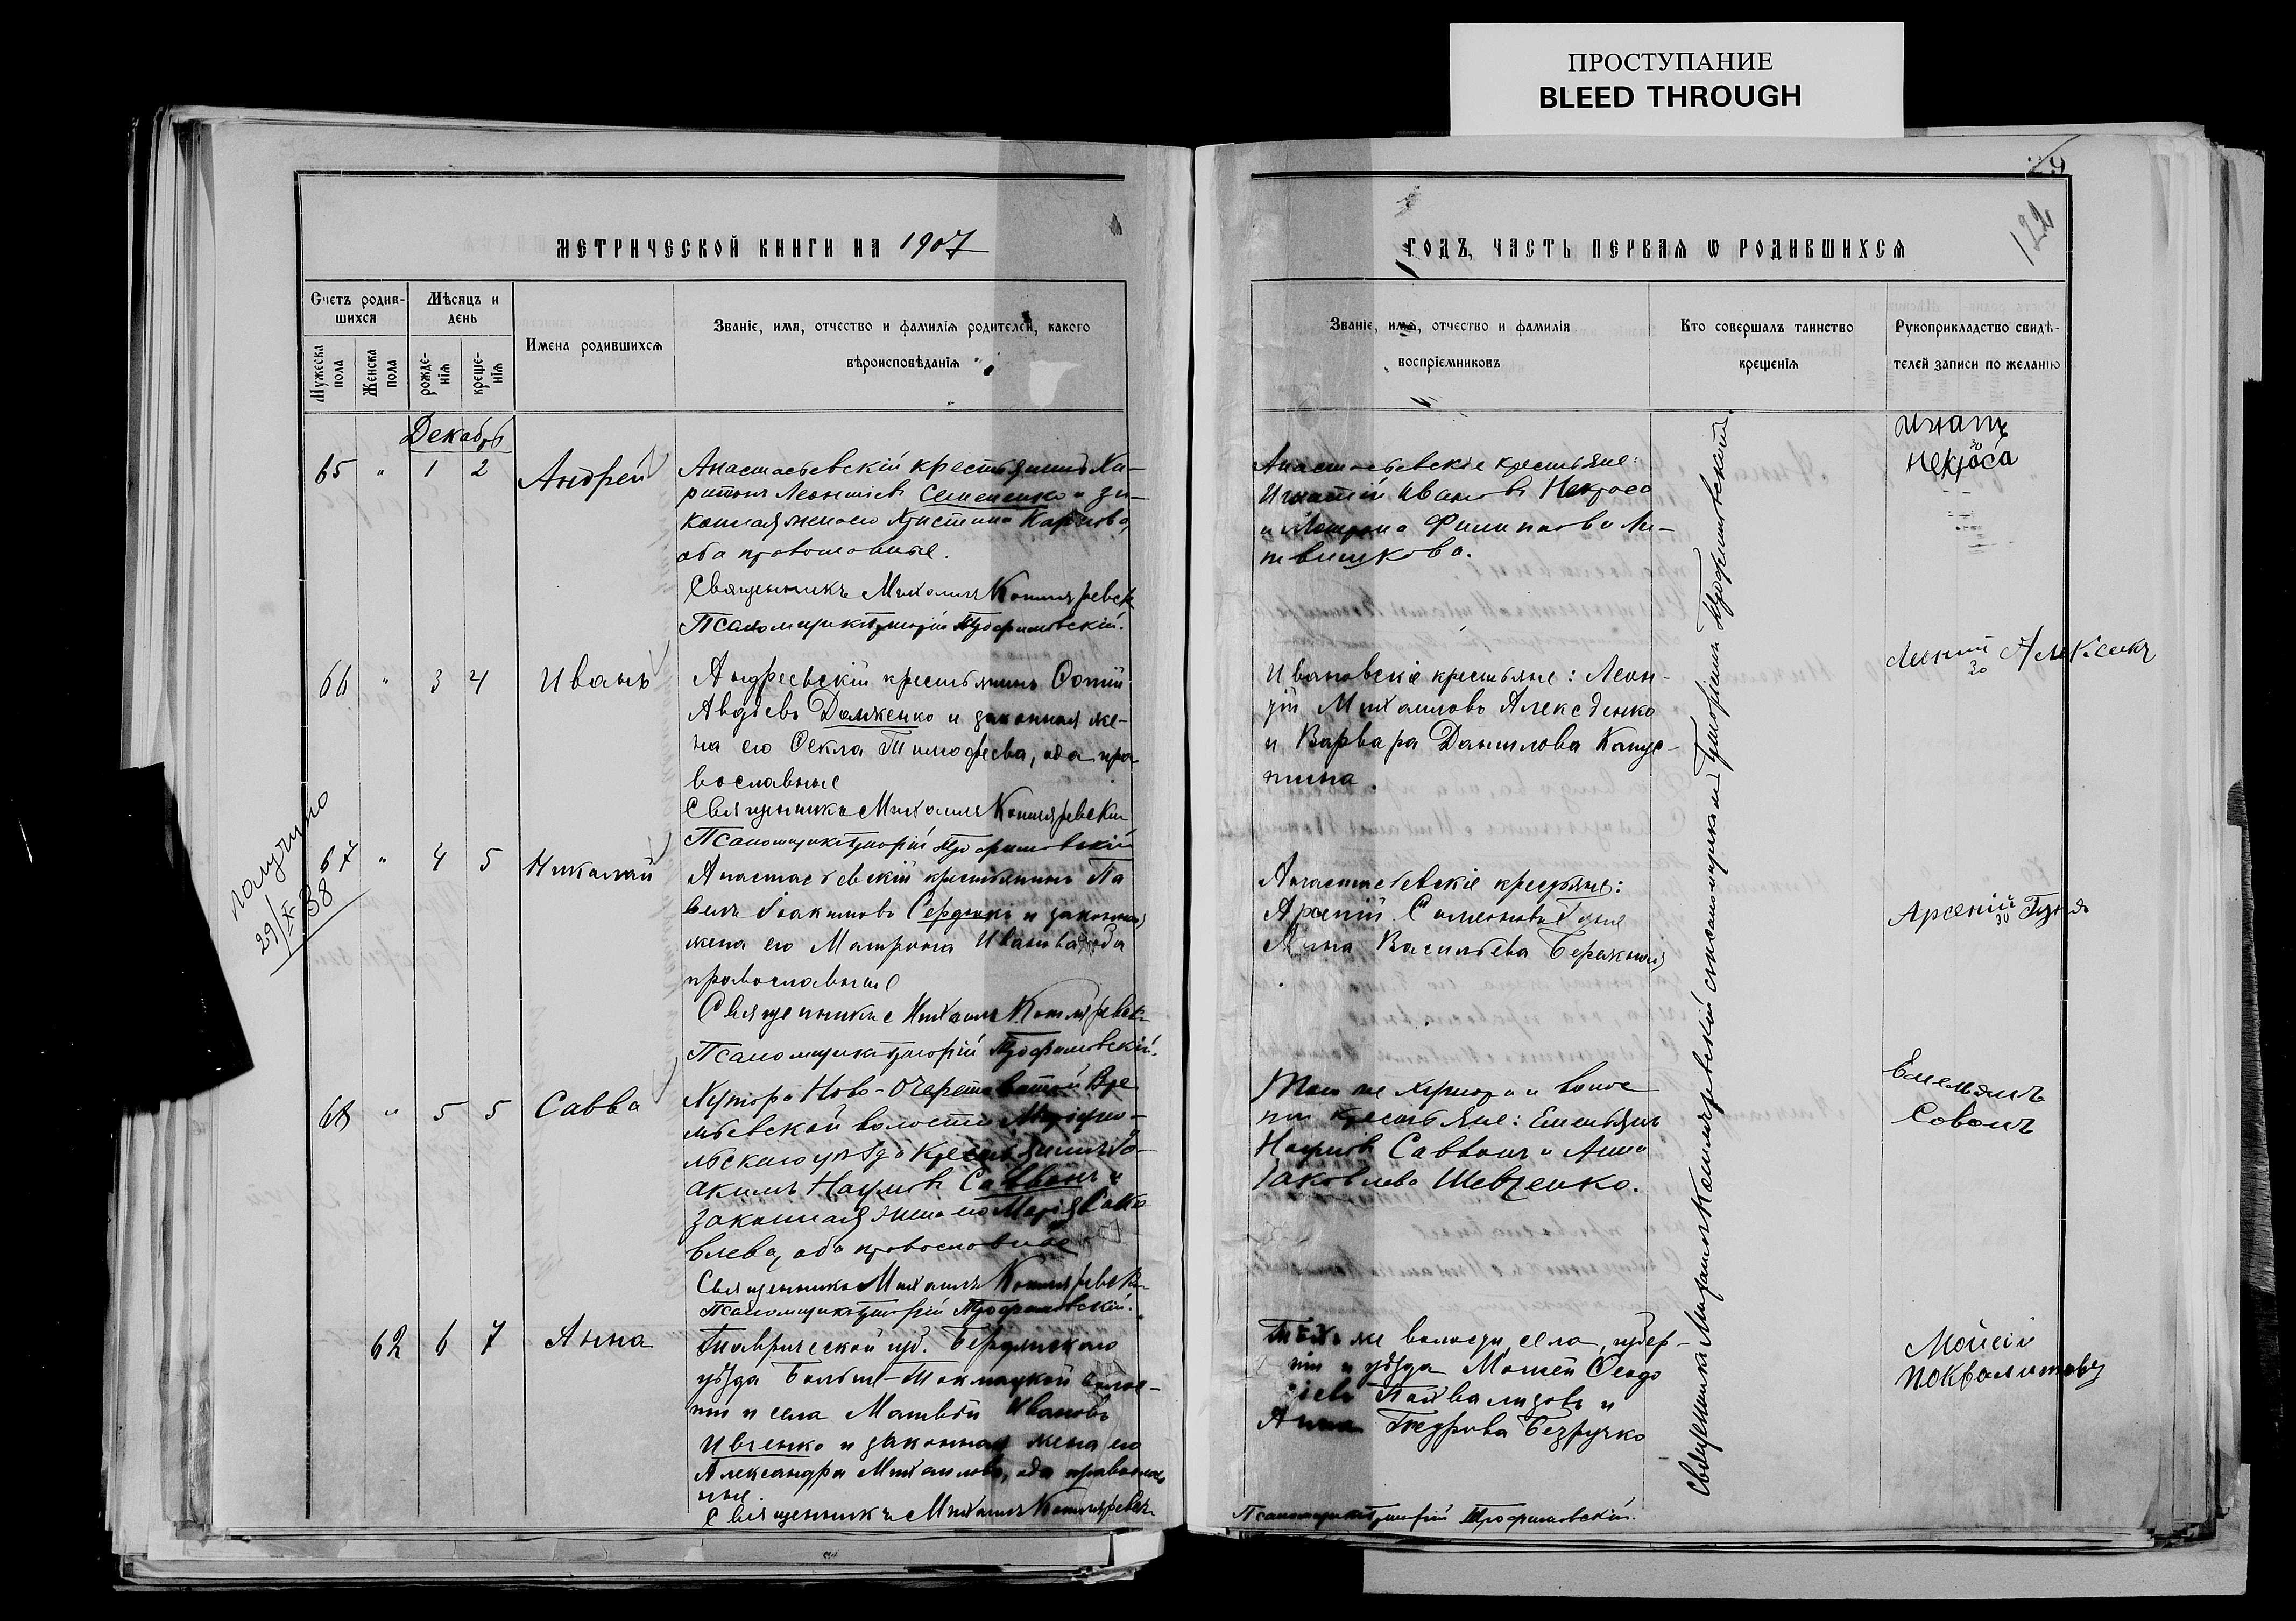 ПРОСТУПАНИЕ
BLEED THROUGH
29
122
МЕТРИЧЕСКОЙ КНИГИ НА 1907
ГОДЪ, ЧАСТЬ ПЕРВАЯ Ѡ РОДИВШИХСЯ
Счетъ родив-
шихся
Мужеска пола
Женска пола
Мѣсяцъ и
день
рожде-
нія
креще-
нія
Имена родившихся
Званіе, имя, отчество и фамилія родителей, какого
вѣроисповѣданія
Званіе, имя, отчество и фамилія
воспріемниковъ
Кто совершалъ таинство
крещенія
Рукоприкладство свидѣ-
телей записи по желанію
Декабрь
65 " 1 2 Андрей
Анастасьевскій крестьянинъ Ха-
ритонъ Леонтіевъ Семененко и за-
конная жена его Христина Карпова,
оба православные.
Священникъ Михаилъ Котляревск
Псаломщикъ Григорій Трофимовскій.
Анастасьевскіе крестьяне:
Игнатій Ивановъ Некроса
и Матрона Филиппова Ли-
твишкова.
Игнатъ
Некроса
66 " 3 4 Иванъ
Андреевскій крестьянинъ Фотій
Авдѣевъ Долженко и законная же-
на его Ѳекла Тимофеева, оба пра
вославные
Священникъ Михаилъ Котляревск
Псаломщикъ Григорій Трофимовскій
Ивановскіе крестьяне: Леон-
тій Михаиловъ Алексѣенко
и Варвара Данилова Капус-
тина.
Леонтій Алексенко
67 " 4 5 Николай
получено
29/IX 38
Анастасьевскій крестьянинъ Па
велъ Іоакимовъ Сердюкъ и законная
жена его Матрона Иванова, оба
православные
Священникъ Михаилъ Котляревск
Псаломщикъ Григорій Трофимовскій.
Анастасьевскіе крестьяне:
Арсеній Симеоновъ
Анна Васильева Бережная
Арсеній
68 " 5 5 Савва
Хутора Ново-Очеретоватой
волости Маріупо-
льскаго уѣзда крестьянинъ Іо-
акимъ Наумовъ Саввонъ и
законная жена его Марія Іако
влева, оба православные
Священникъ Михаилъ Котляревск
Псаломщикъ Григорій Трофимовскій.
Того же хутора и волос
ти крестьяне: Емельянъ
Наумовъ Саввонъ и Анна
Іаковлева Шевченко.
Емельянъ
Совонъ
62 6 7 Анна
Таврической губ. Бердянскаго
уѣзда Больше-Токмацкой волос-
ти и села Матвѣй Ивановъ
Ивченко и законная жена его
Александра Михаилова, оба православ
ные.
Священникъ Михаилъ Котляревск
Тѣхъ же волости, села, губер-
ніи и уѣзда Моисей Ѳеодо
сіевъ Похвалитовъ и
Анна Петрова Безручко
Мойсей
Похвалитовъ
Псаломщикъ Григорій Трофимовскій.
Священникъ Михаилъ Котляревскій съ псаломщикомъ Григоріемъ Трофимовскимъ.